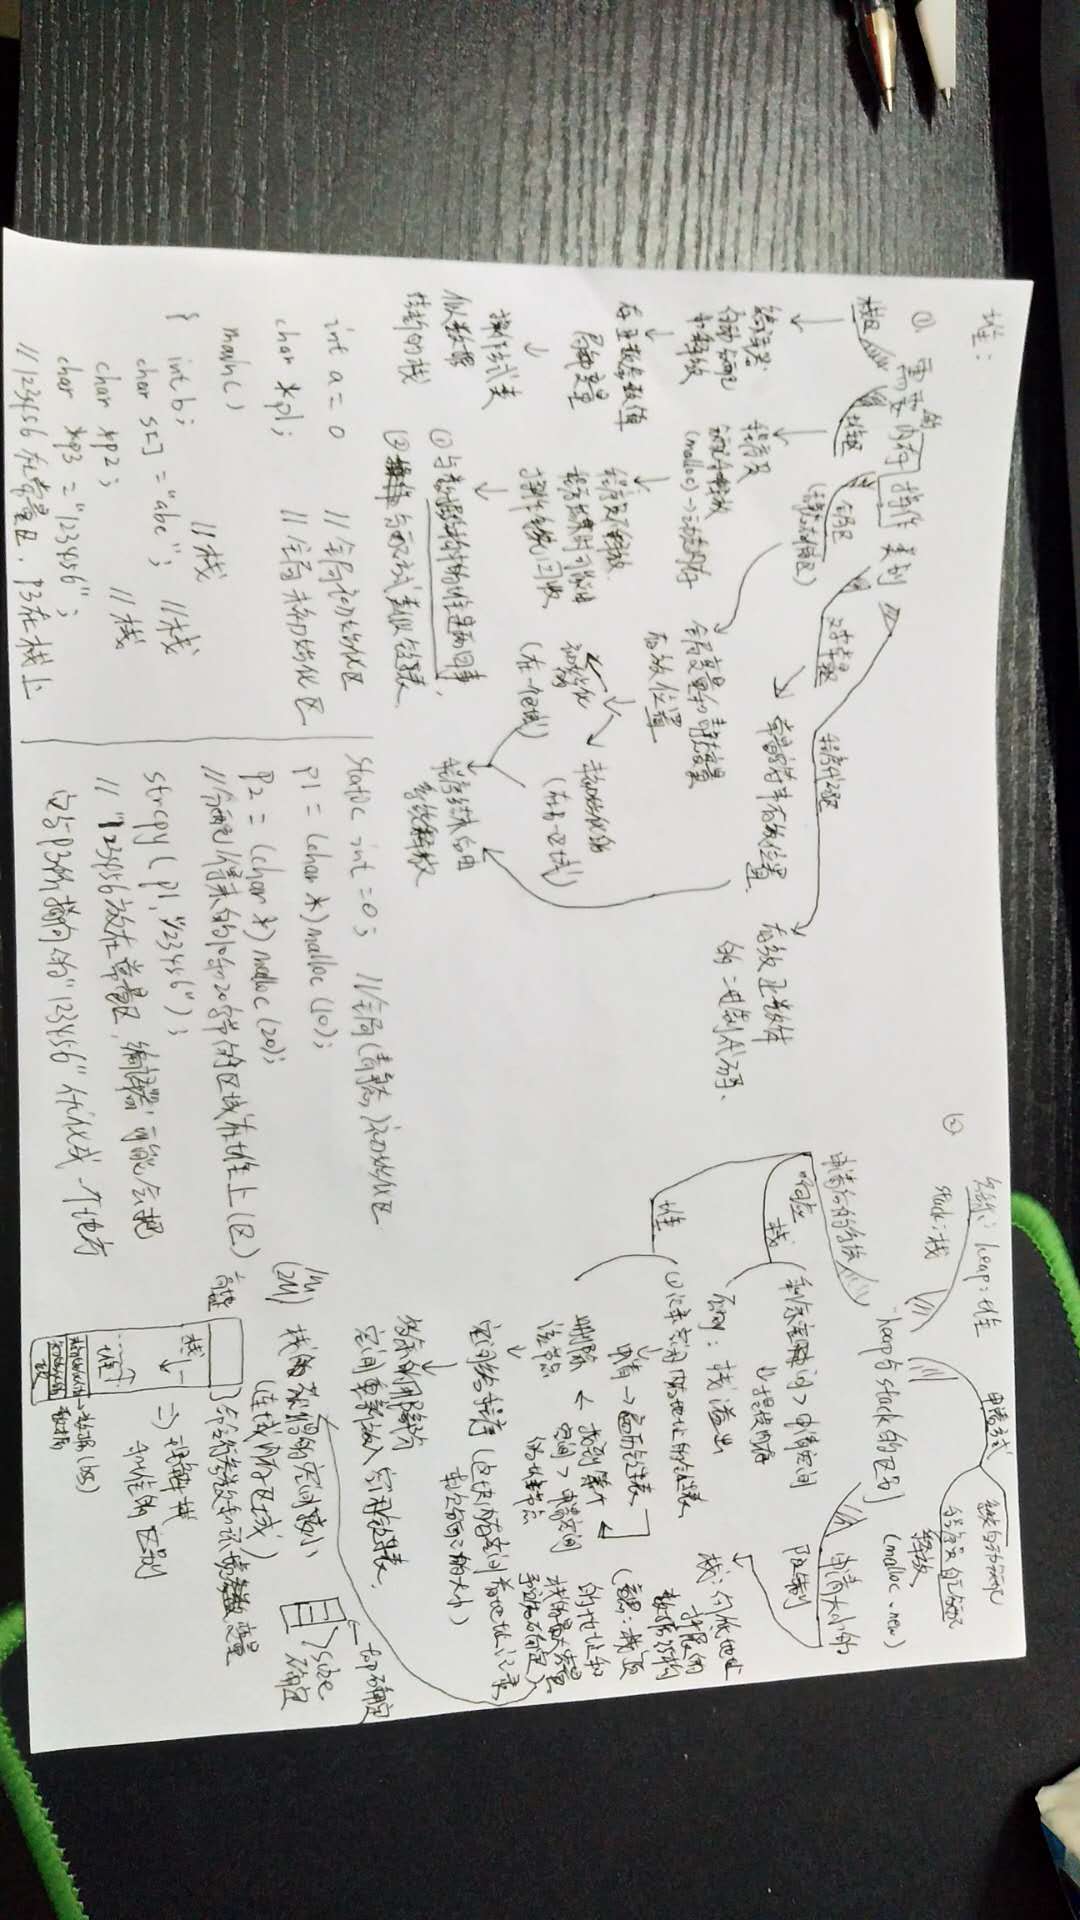 堆：
①. 需要的内存操作类别
栈区
堆区
全局区
(静态存储区)
文字常量区
程序代码区
编译器
自动分配
和释放
存函数参数值
局部变量
操作方式类
似数据
结构的栈
程序员
分配和释放
(malloc)→动态内存
程序员不释放
程序结束时可能由
操作系统回收
①与数据结构中的堆是两回事.
②分配方式类似链表.
全局变量和静态变量
存放位置
初始化
(在一个区域)
未初始化的
(在另一区域)
程序结束后由
系统释放
常量字符串存放位置
存放函数体
的二进制代码.
int a = 0 // 全局初始化区
char *p1; // 全局未初始化区
main()
{ int b; //栈
char s[] = "abc"; //栈
char *p2; //栈
char *p3 = "123456";
//123456在常量区, p3在栈上
static int =0; //全局(静态)初始化区
p1 = (char *)malloc(10);
p2 = (char *)malloc(20);
//分配得来的10和20字节的区域在堆上(区)
strcpy(p1,"123456");
// "123456放在常量区, 编译器可能会把
它与P3所指向的"123456"优化成一个地方
②
名称: heap:堆
stack:栈
申请方式
系统自动分配
程序员自己分配
释放
(malloc、new)
heap与stack的区别
申请后的系统
响应
栈
剩余空间>申请空间
提供内存
否则: 栈溢出
堆
记录空闲内存地址的链表
申请→遍历链表
找到第一个
空间>申请空间
的堆节点
删除
该节点
空间给程序(这块内存空间首地址记录
本次分配的大小)
多余的那部分
空间重新放入空闲链表.
申请大小的
限制
栈: 向低地址
扩展的
数据结构
(意思: 栈顶
的地址和
栈的最大容量
预先确定)
top确定
size
确定
(2M) 栈获得的空间较小
(连续内存区域)
高地址
命令行参数和环境变量
栈
⇒理解栈
和堆的区别
堆
未初始化的→数据(bss)
初始化的 数据